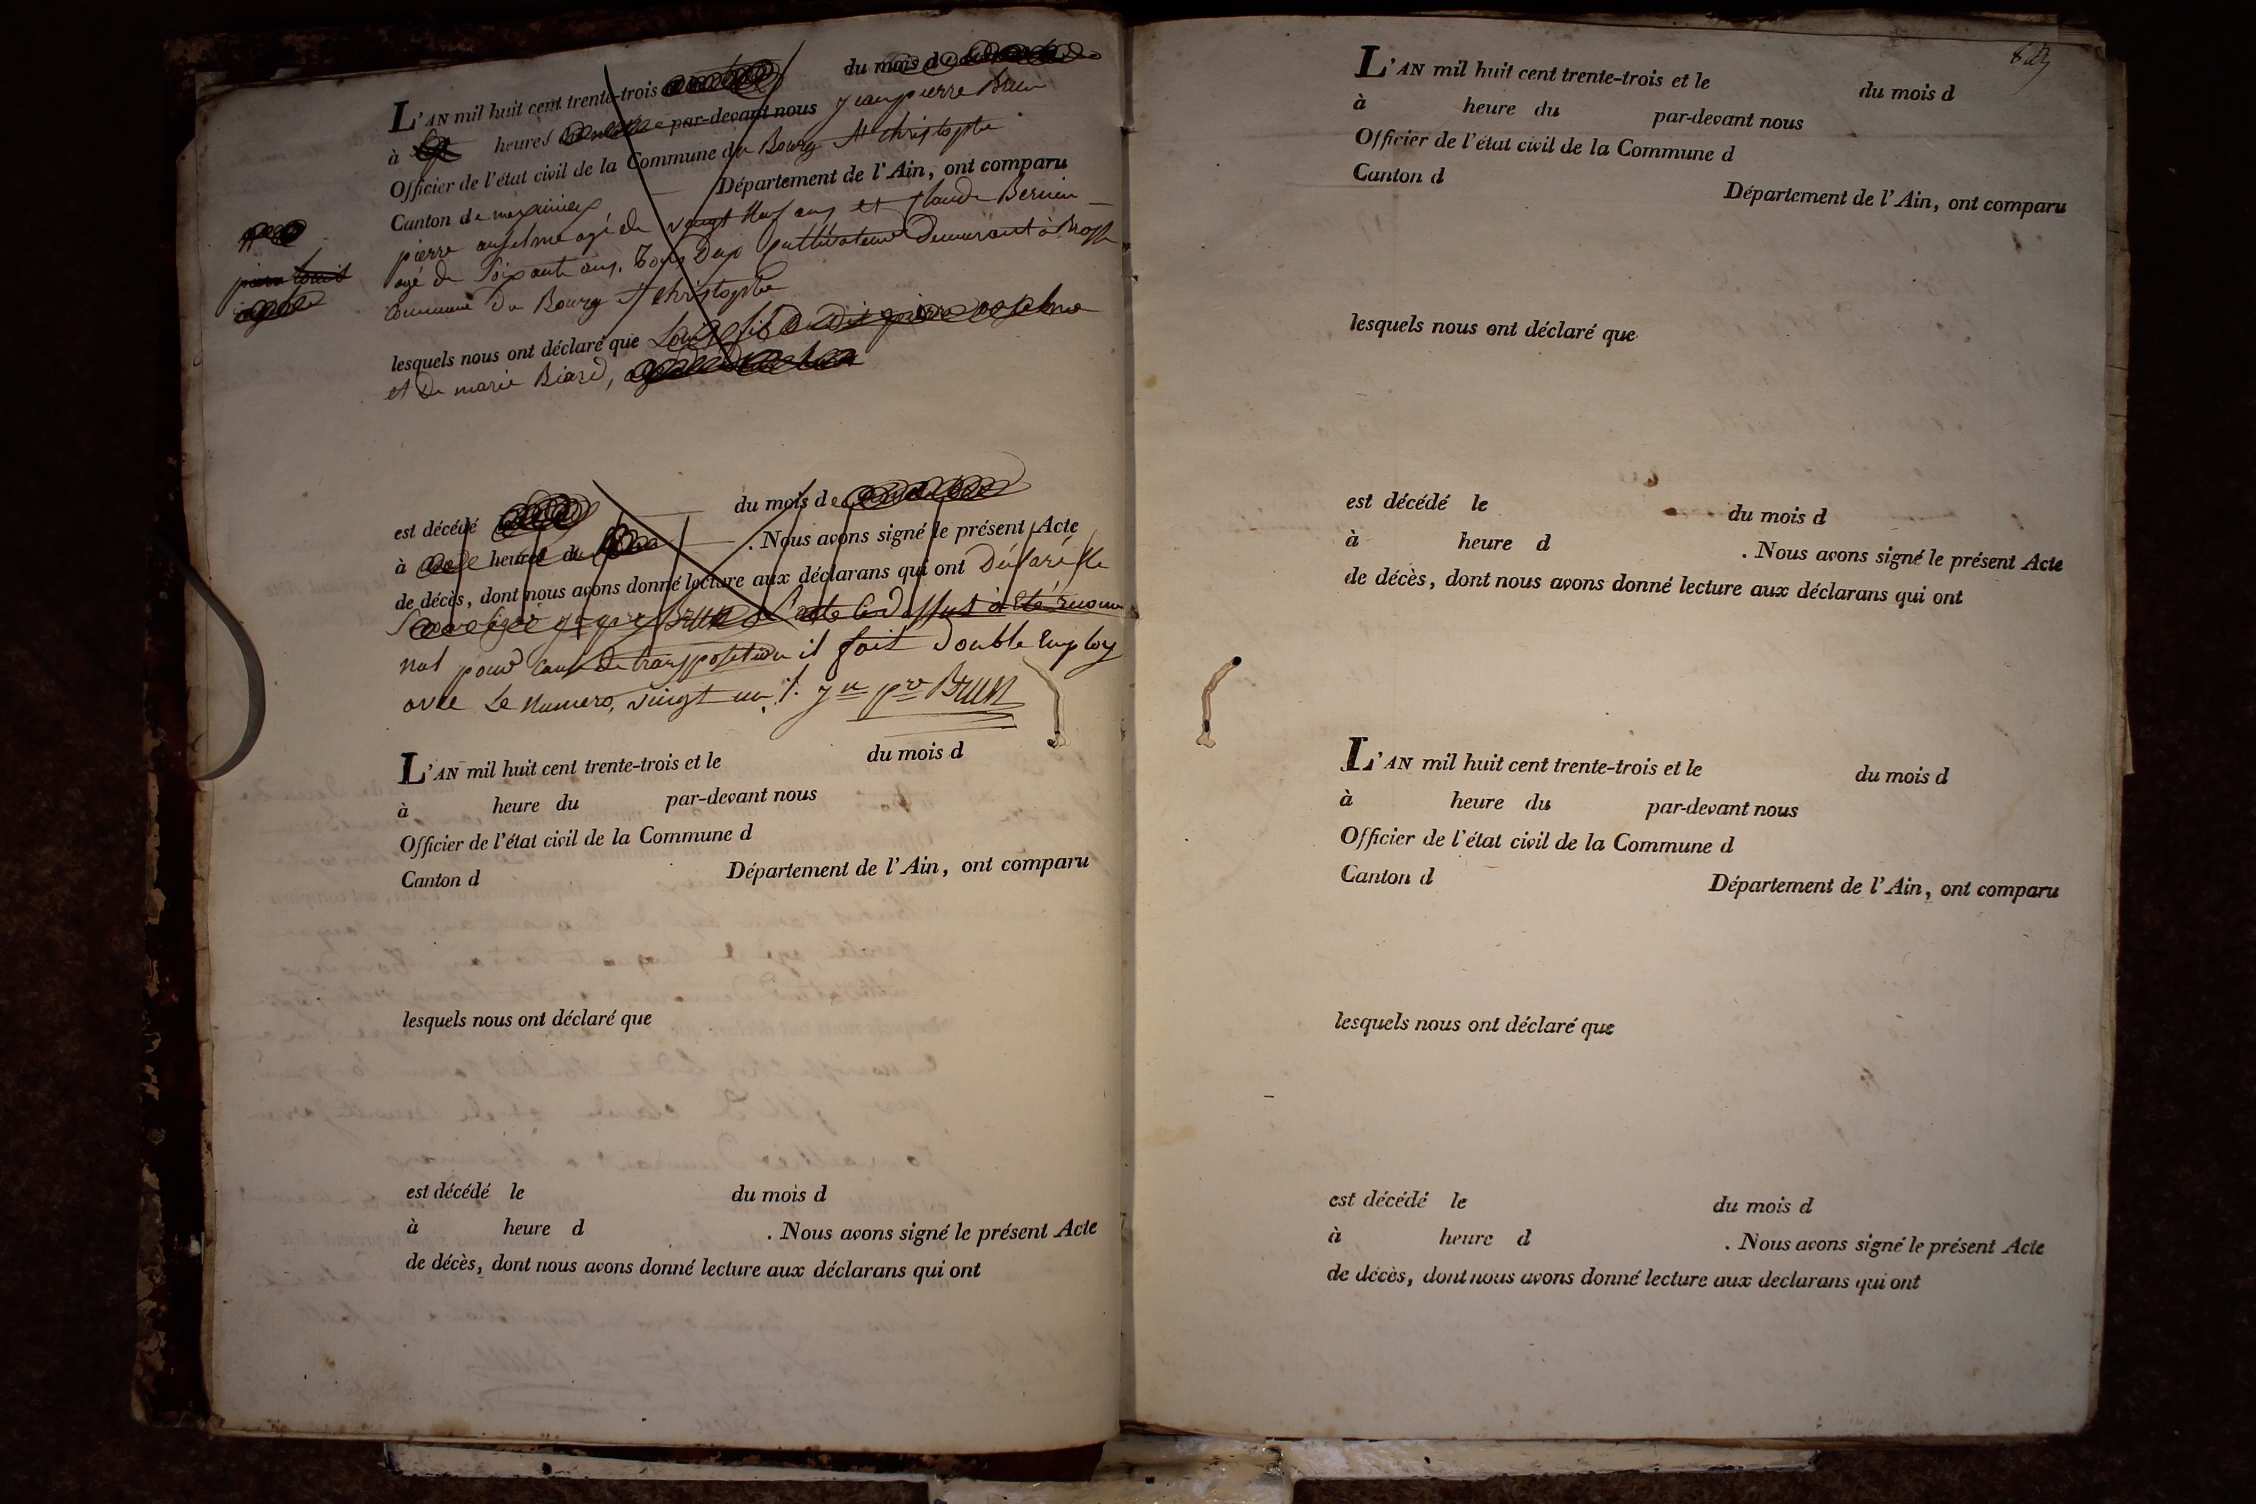 L'AN mil huit cent trente-trois du mois d
à heures par-devant nous jean pierre Brun
Officier de l'état civil de la Commune du Bourg St christophe
Canton de meximieux Département de l'Ain, ont comparu
pierre anselme agé de vingt neuf ans et Claude Bernin
agé de soixante ans, tous deux cultivateurs Demeurant à
commune du Bourg St christophe
lesquels nous ont déclaré que Louis fils dudit pierre anselme
et de marie Biard,
est décédé du mois de
à heures du . Nous avons signé le présent Acte
de décès, dont nous avons donné lecture aux déclarans qui ont Déclaré ne
savoir signer Brun L'acte ci dessus à été reconnu
nul pour cause de transposition il fait Double Employ
avec Le numero, vingt un ./. jn pre BRUN
pierre Louis
L'AN mil huit cent trente-trois et le du mois d
à heure du par-devant nous
Officier de l'état civil de la Commune d
Canton d Département de l'Ain, ont comparu
lesquels nous ont déclaré que
est décédé le du mois d
à heure d . Nous avons signé le présent Acte
de décès, dont nous avons donné lecture aux déclarans qui ont
L'AN mil huit cent trente-trois et le du mois d
à heure du par-devant nous
Officier de l'état civil de la Commune d
Canton d Département de l'Ain, ont comparu
lesquels nous ont déclaré que
est décédé le du mois d
à heure d . Nous avons signé le présent Acte
de décès, dont nous avons donné lecture aux déclarans qui ont
L'AN mil huit cent trente-trois et le du mois d
à heure du par-devant nous
Officier de l'état civil de la Commune d
Canton d Département de l'Ain, ont comparu
lesquels nous ont déclaré que
est décédé le du mois d
à heure d . Nous avons signé le présent Acte
de décès, dont nous avons donné lecture aux déclarans qui ont